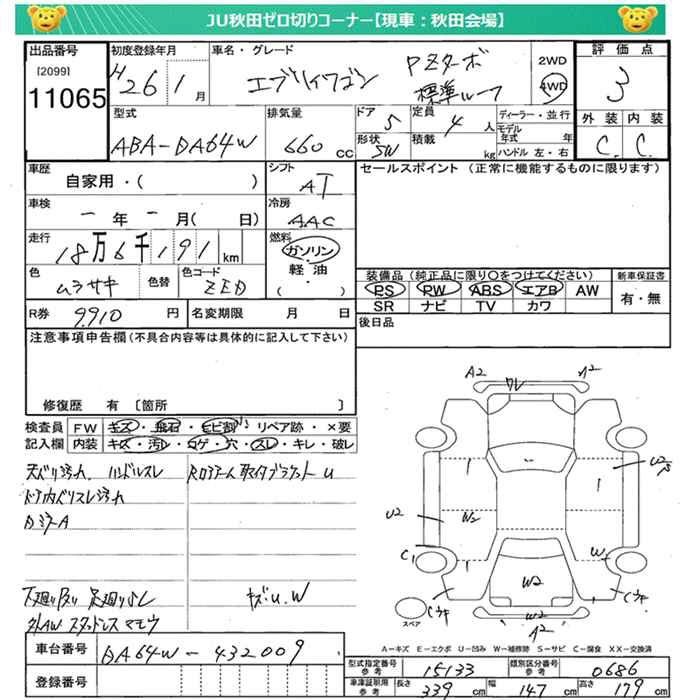 JU秋田ゼロ切りコーナー【現車：秋田会場】
出品番号
[2099]
11065
初度登録年月
H26 1月
車名・グレード
エブリィワゴン
PZターボ
標準ルーフ
2WD
4WD
評価点
3
外装 内装
C C
型式
ABA-DA64W
排気量
660 cc
ドア
5
定員
4人
形状
SW
積載
kg
ディーラー・並行
モデル年式 年
ハンドル 左・右
車歴
自家用・( )
シフト
AT
セールスポイント (正常に機能するものに限ります)
車検
ー年ー月( 日)
冷房
AAC
走行
18万6千191km
燃料
ガソリン・
軽油・
( )
色
ムラサキ
色替
色コード
ZED
装備品 (純正品に限り○をつけてください)
PS PW ABS エアB AW
SR ナビ TV カワ
新車保証書
有・無
R券 9910円
名変期限 月 日
後日品
注意事項申告欄(不具合内容等は具体的に記入して下さい)
修復歴 有 〔箇所 〕
検査員記入欄
FW キズ・飛石・ヒビ割・リペア跡・×要
内装 キズ・汚レ・コゲ・穴・スレ・キレ・破レ
天バリ汚れ ハンドルスレ
ドア内バリスレ汚れ
下廻りサビ 足廻りサビ
外AW スタッドレス マモウ
キズU.W
A2
ワレ
A2
U2
W2
C1
W
W2
Cウキ
Cウキ
W2
A2
スペア
A－キズ E－エクボ U－凹み W－補修跡 S－サビ C－腐食 XX－交換済
車台番号
DA64W-432009
登録番号
型式指定番号
参考
15133
類別区分番号
参考
0686
車庫証明用
参考
長さ 339cm
幅 147cm
高さ 179cm